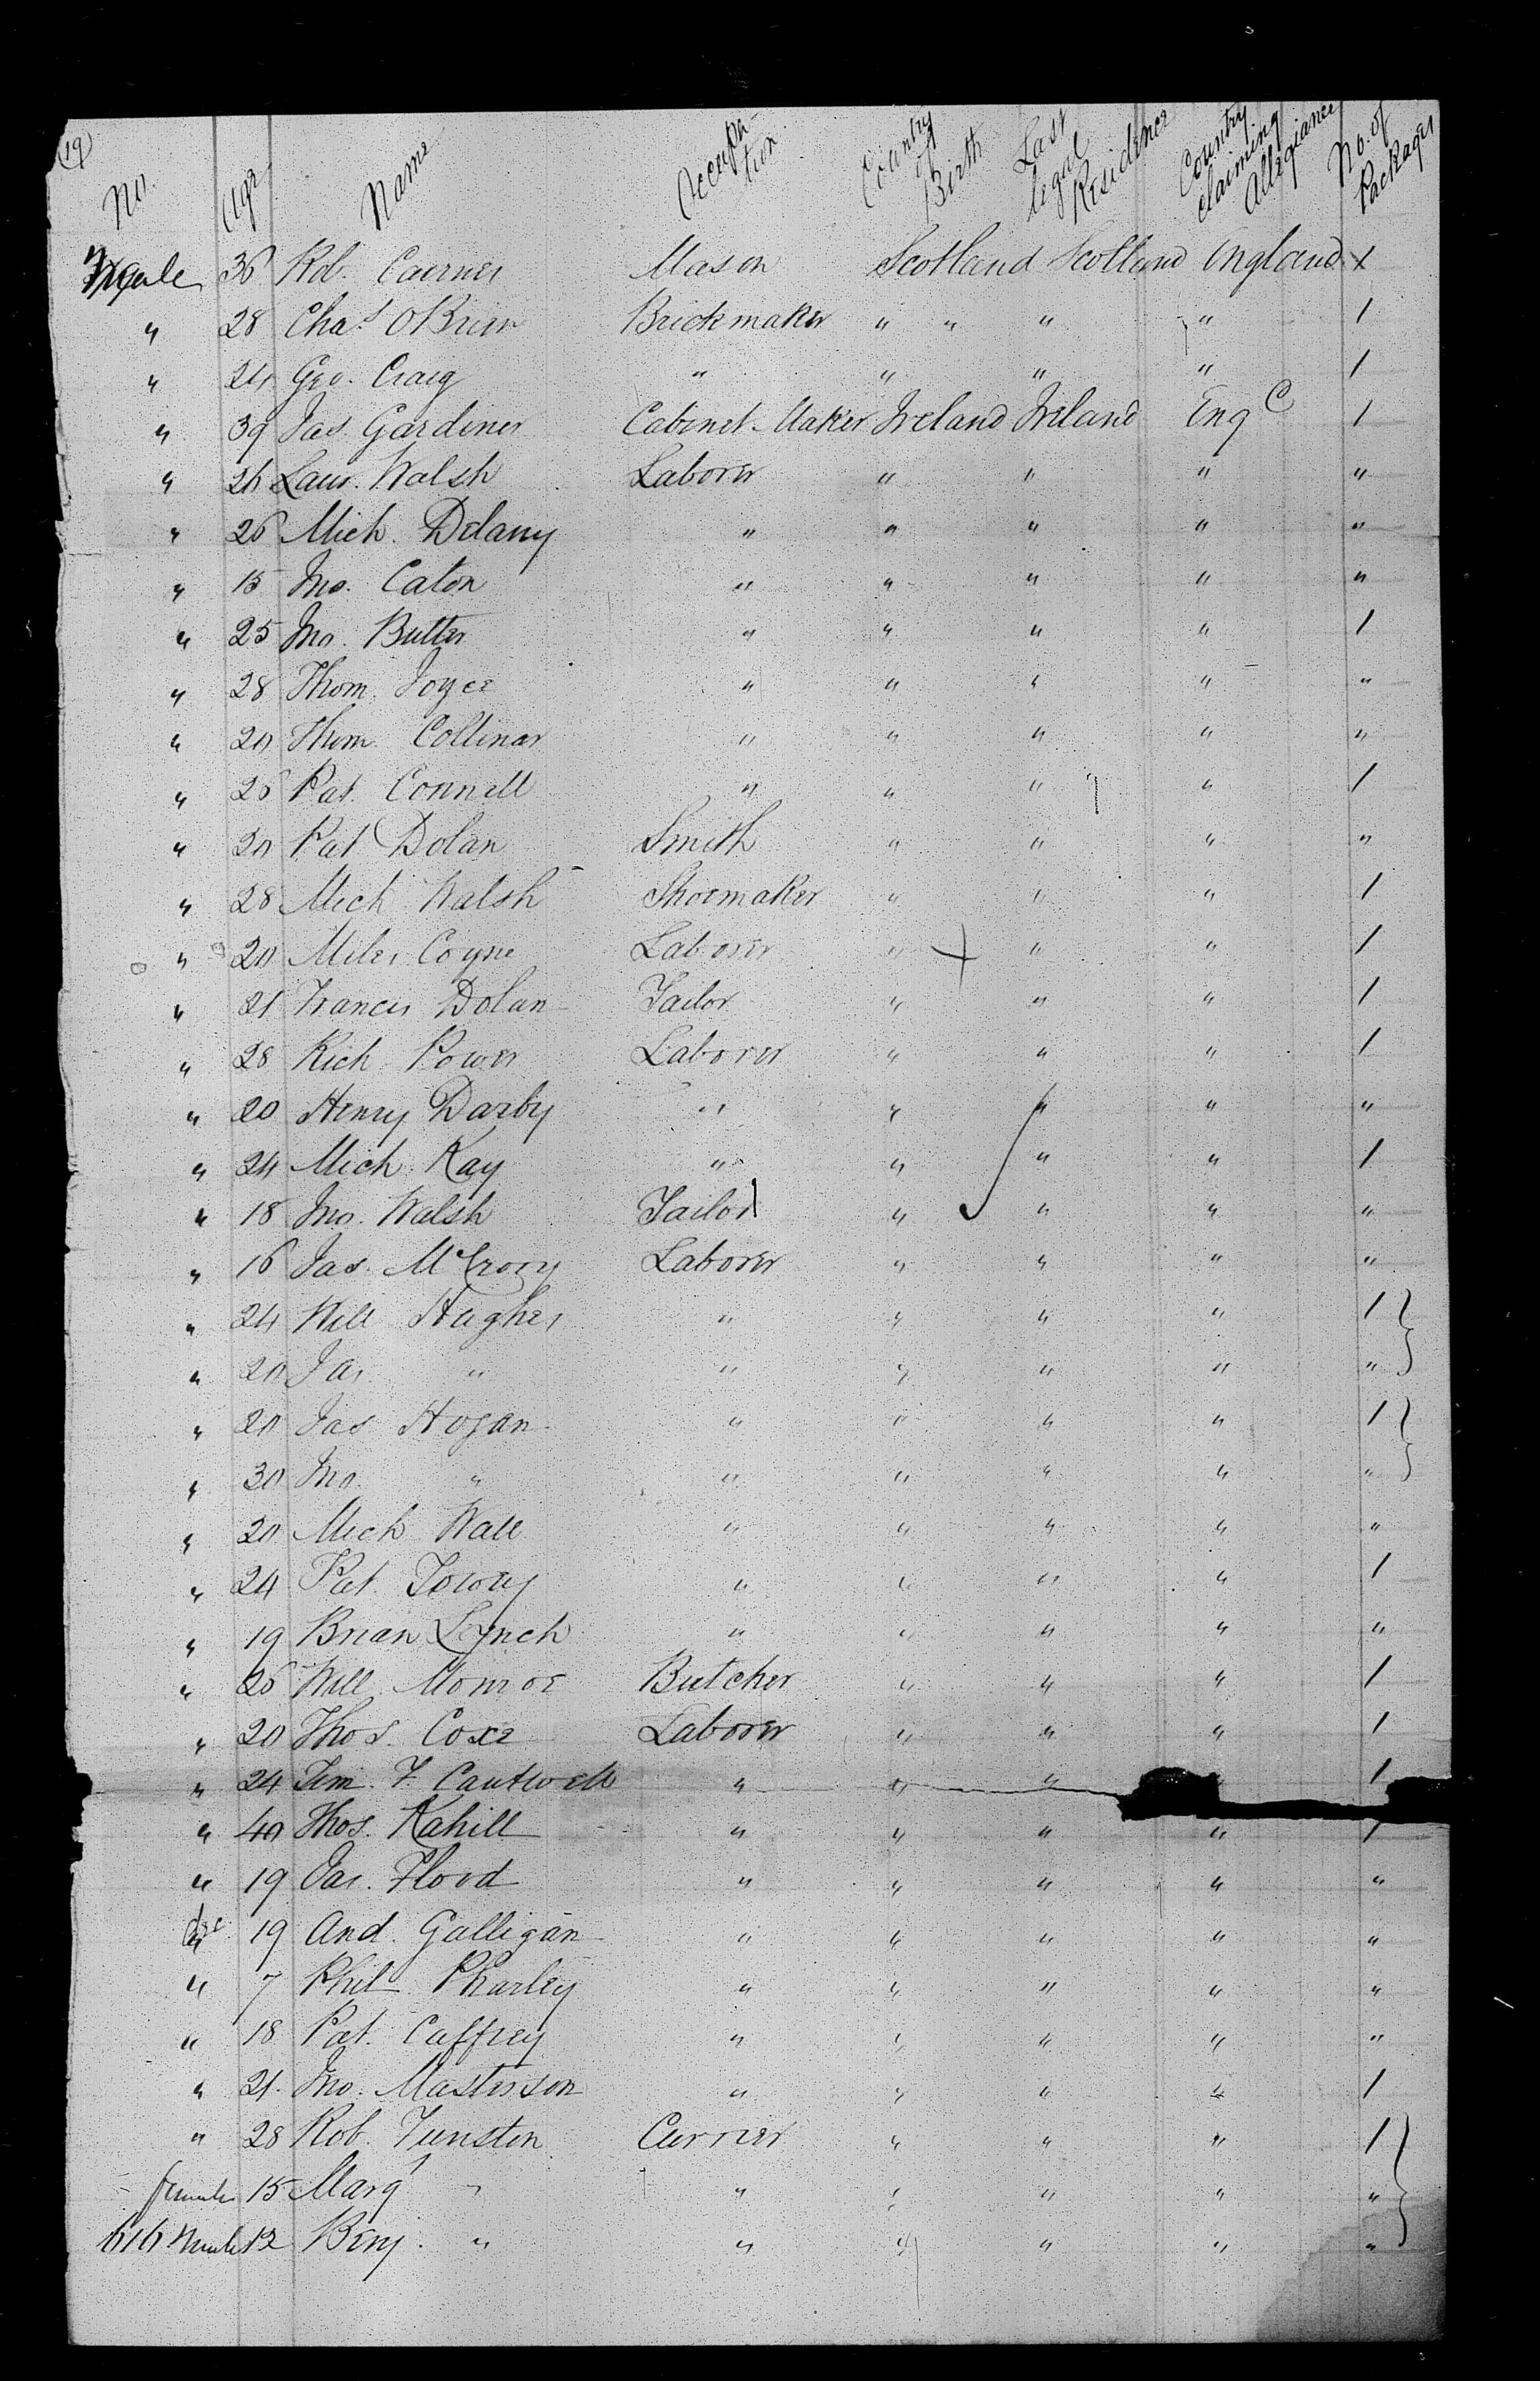 (19)
No. Age Name Occupa-tion Country of Birth Last legal Residence Country claiming Allegiance No. of Packages
Male 36 Rob. Cairnes Mason Scotland Scotland England 1
" 28 Chas OBrien Brickmaker " " " " 1
" 24 Geo. Craig " " " " 1
" 39 Jas Gardiner Cabinet Maker Ireland Ireland Eng 1
" 26 Laur. Walsh Laborer " " " "
" 26 Mich. Delany " " " " "
" 15 Jno. Caton " " " " "
" 25 Jno. Butler " " " " 1
" 28 Thom. Joyce " " " " "
" 20 Thom. Collinar " " " " "
" 26 Pat. Connell " " " " 1
" 20 Pat Dolan Smith " " " "
" 28 Mich Walsh Shoemaker " " " 1
" 20 Miles Coyne Laborer " " " 1
" 21 Francis Dolan Tailor " " " 1
" 28 Rich Power Laborer " " " 1
" 20 Henry Darby " " " " "
" 24 Mich Kay " " " " 1
" 18 Jno. Walsh Tailor " " " "
" 16 Jas. McCrory Laborer " " " "
" 24 Will Hughes " " " " 1
" 20 Jas " " " " " "
" 20 Jas Hogan " " " " 1
" 30 Jno. " " " " " "
" 20 Mich Wall " " " " "
" 24 Pat. " " " " 1
" 19 Brian Lynch " " " " "
" 26 Will Monroe Butcher " " " 1
" 20 Thos. Coxe Laborer " " " 1
" 24 Jim. F. Cantwell " " " 1
" 40 Thos. Kahill " " " " 1
" 19 Jas. Flood " " " " "
" 19 And. Galligan " " " " "
" 7 Phil Pharley " " " " "
" 18 Pat. Caffrey " " " " "
" 21. Jno. Masterson " " " " 1
" 28 Rob. Tunsten Currier " " " 1
female 15 Marg " " " " " "
616 Male 12 Benj. " " " " " "